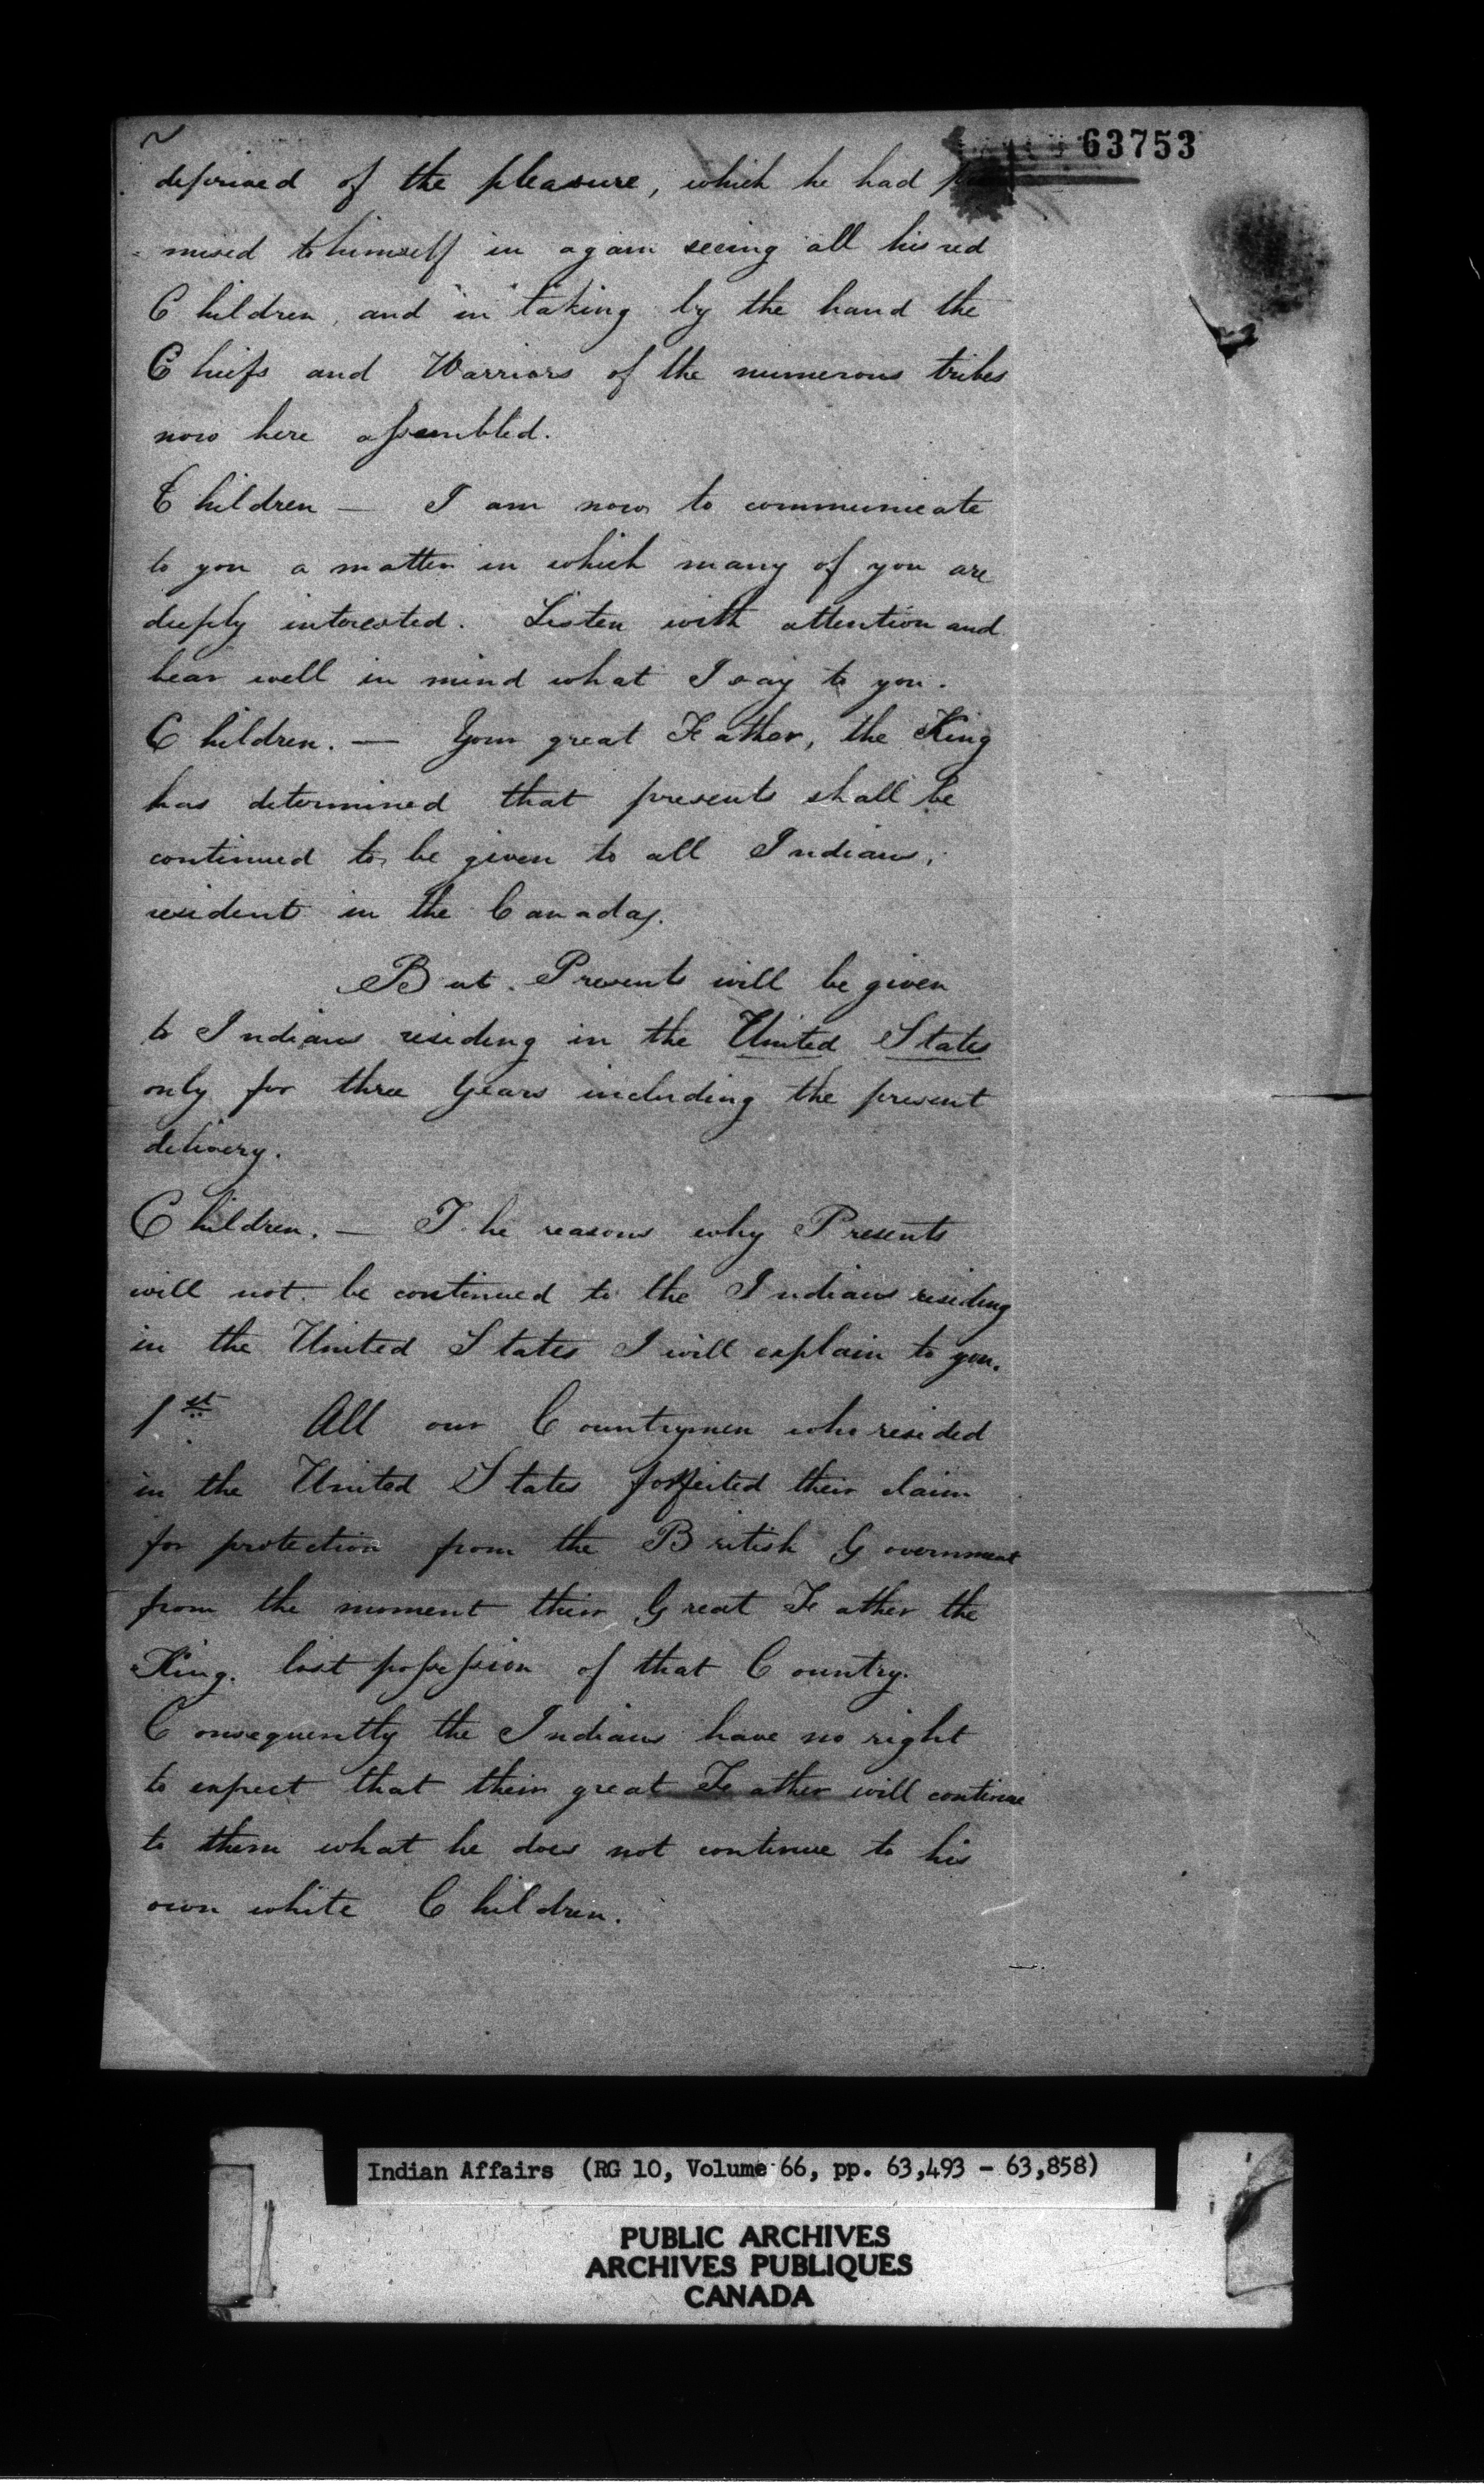 63753
deprived of the pleasure, which he had
mised to himself in again seeing all his red
Children, and in taking by the hand the
Chiefs and Warriors of the numerous tribes
now here assembled.
Children — I am now to communicate
to you a matter in which many of you are
deeply interested. Listen with attention and
bear well in mind what I say to you.
Children. — Your great Father, the King
has determined that presents shall be
continued to be given to all Indians,
resident in the Canadas.
But. Presents will be given
to Indians residing in the United States
only for three Years including the present
delivery.
Children. — The reasons why Presents
will not be continued to the Indians residing
in the United States I will explain to you.
1st All our Countrymen who resided
in the United States forfeited their claim
for protection from the British Government
from the moment their Great Father the
King. lost possession of that Country.
Consequently the Indians have no right
to expect that their great Father will continue
to them what he does not continue to his
own white Children.
Indian Affairs (RG 10, Volume 66, pp. 63,493 - 63,858)
PUBLIC ARCHIVES
ARCHIVES PUBLIQUES
CANADA